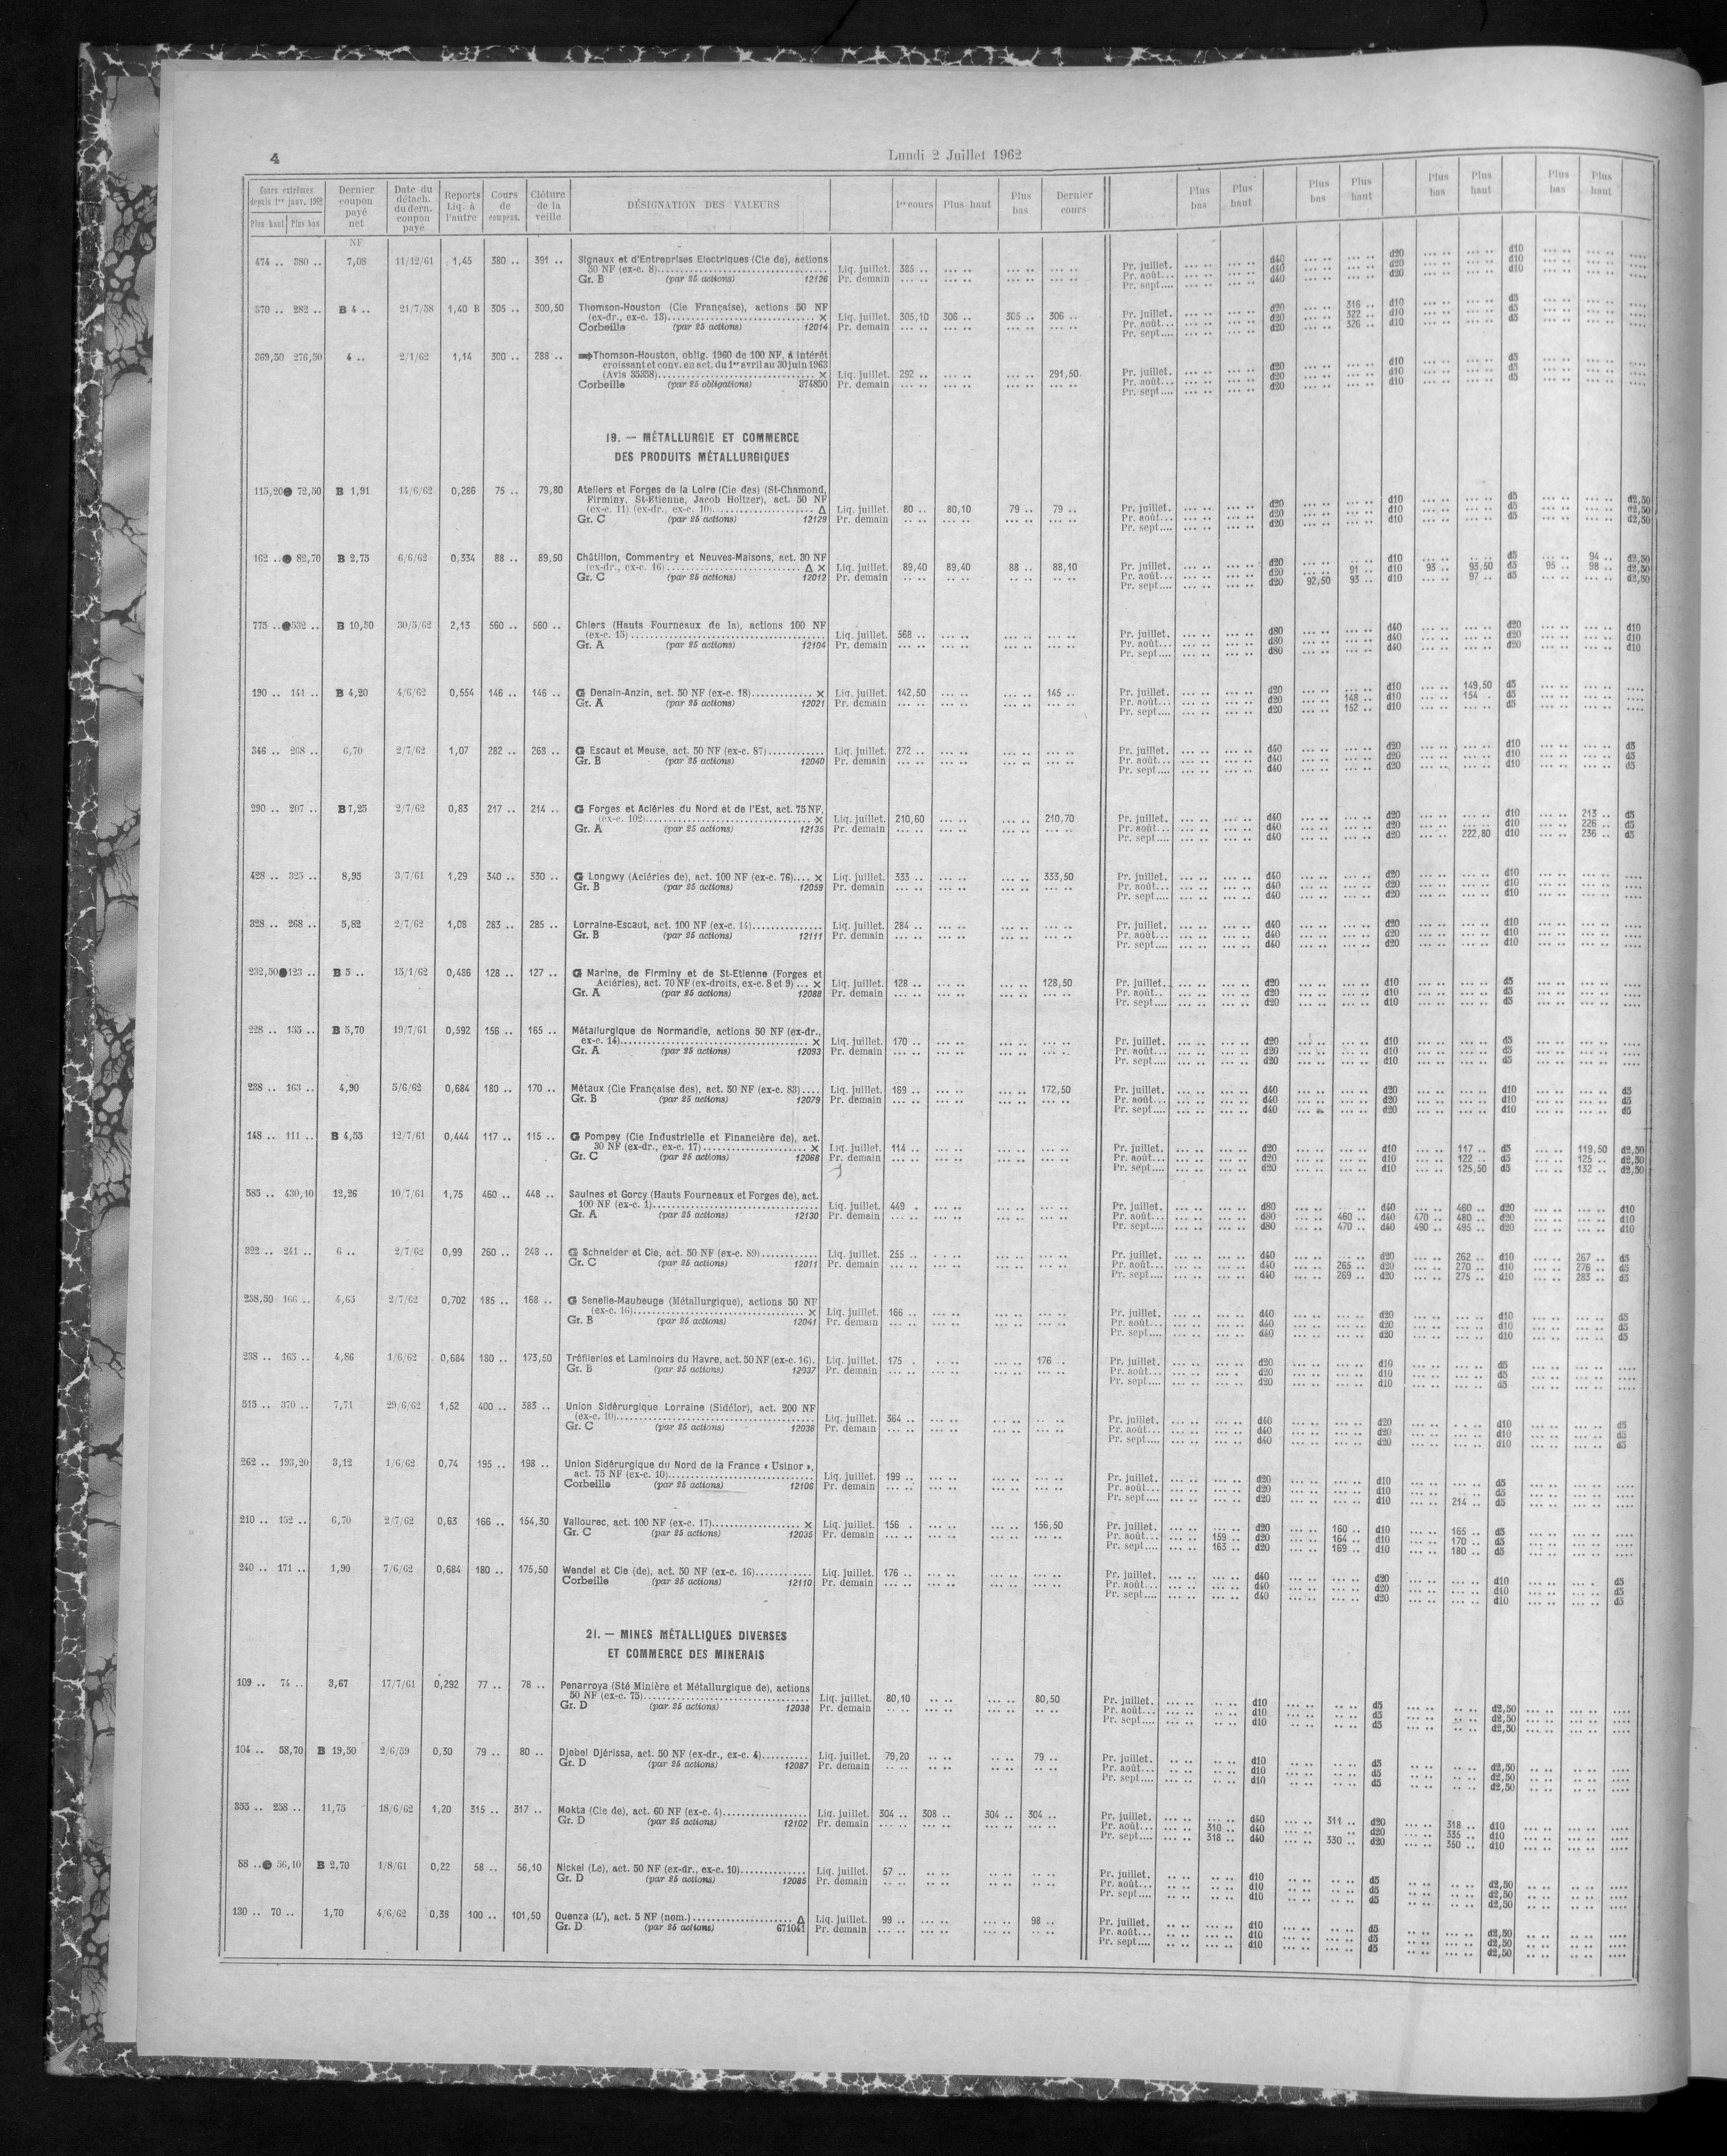 4
Lundi 2 Juillet 1962
Cours extrêmes depuis 1er janv. 1962 Plus haut Plus bas Dernier coupon payé net Date du détach. du dern. coupon payé Reports Liq. à l'autre Cours de compens. Clôture de la veille DÉSIGNATION DES VALEURS 1er cours Plus haut Plus bas Dernier cours Plus bas Plus haut Plus bas Plus haut Plus bas Plus haut Plus bas Plus haut
NF
474 .. 380 .. 7,08 11/12/61 1,45 380 .. 391 .. Signaux et d'Entreprises Electriques (Cie de), actions
50 NF (ex-c. 8) Liq. juillet. 385 .. Pr. juillet. d40 d20 d10
Gr. B (par 25 actions) 12126 Pr. demain Pr. août... d40 d20 d10
Pr. sept.... d40 d20 d10
370 .. 282 .. B 4 .. 21/7/58 1,40 B 305 .. 300,50 Thomson-Houston (Cie Française), actions 50 NF
(ex-dr., ex-c. 13) × Liq. juillet. 305,10 306 .. 305 .. 306 .. Pr. juillet. d20 316 .. d10 d5
Corbeille (par 25 actions) 12014 Pr. demain Pr. août... d20 322 .. d10 d5
Pr. sept.... d20 326 .. d10 d5
369,50 276,50 4 .. 2/1/62 1,14 300 .. 288 .. Thomson-Houston, oblig. 1960 de 100 NF, à intérêt
croissant et conv. en act. du 1er avril au 30 juin 1963
(Avis 35358) × Liq. juillet. 292 .. 291,50 Pr. juillet. d20 d10 d5
Corbeille (par 25 obligations) 374850 Pr. demain Pr. août... d20 d10 d5
Pr. sept.... d20 d10 d5
19. — MÉTALLURGIE ET COMMERCE
DES PRODUITS MÉTALLURGIQUES
115,20 72,50 B 1,91 14/6/62 0,286 75 .. 79,80 Ateliers et Forges de la Loire (Cie des) (St-Chamond,
Firminy, St-Etienne, Jacob Holtzer), act. 50 NF
(ex-c. 11) (ex-dr., ex-c. 10) Δ Liq. juillet. 80 .. 80,10 79 .. 79 .. Pr. juillet. d20 d10 d5 d2,50
Gr. C (par 25 actions) 12129 Pr. demain Pr. août... d20 d10 d5 d2,50
Pr. sept.... d20 d10 d5 d2,50
162 .. 82,70 B 2,75 6/6/62 0,334 88 .. 89,50 Châtillon, Commentry et Neuves-Maisons, act. 30 NF
(ex-dr., ex-c. 16) Δ × Liq. juillet. 89,40 89,40 88 .. 88,10 Pr. juillet. d20 d10 d5 94 .. d2,50
Gr. C (par 25 actions) 12012 Pr. demain Pr. août... d20 91 .. d10 93 .. 93,50 d5 95 .. 98 .. d2,50
Pr. sept.... d20 92,50 93 .. d10 97 .. d5 d2,50
775 .. 532 .. B 10,50 30/5/62 2,13 560 .. 560 .. Chiers (Hauts Fourneaux de la), actions 100 NF
(ex-c. 15) Liq. juillet. 568 .. Pr. juillet. d80 d40 d20 d10
Gr. A (par 25 actions) 12104 Pr. demain Pr. août... d80 d40 d20 d10
Pr. sept.... d80 d40 d20 d10
190 .. 141 .. B 4,20 4/6/62 0,554 146 .. 146 .. G Denain-Anzin, act. 50 NF (ex-c. 18) × Liq. juillet. 142,50 145 .. Pr. juillet. d20 d10 149,50 d5
Gr. A (par 25 actions) 12021 Pr. demain Pr. août... d20 148 .. d10 154 . d5
Pr. sept.... d20 152 .. d10 d5
346 .. 268 .. 6,70 2/7/62 1,07 282 .. 268 .. G Escaut et Meuse, act. 50 NF (ex-c. 87) Liq. juillet. 272 .. Pr. juillet. d40 d20 d10 d5
Gr. B (par 25 actions) 12040 Pr. demain Pr. août... d40 d20 d10 d5
Pr. sept.... d40 d20 d10 d5
290 .. 207 .. B 7,25 2/7/62 0,83 217 .. 214 .. G Forges et Aciéries du Nord et de l'Est, act. 75 NF,
(ex-c. 102) × Liq. juillet. 210,60 210,70 Pr. juillet. d40 d20 d10 213 .. d5
Gr. A (par 25 actions) 12135 Pr. demain Pr. août... d40 d20 d10 226 .. d5
Pr. sept.... d40 d20 222,80 d10 236 .. d5
428 .. 325 .. 8,95 3/7/61 1,29 340 .. 330 .. G Longwy (Aciéries de), act. 100 NF (ex-c. 76).... × Liq. juillet. 333 .. 333,50 Pr. juillet. d40 d20 d10
Gr. B (par 25 actions) 12059 Pr. demain Pr. août... d40 d20 d10
Pr. sept.... d40 d20 d10
328 .. 268 .. 5,82 2/7/62 1,08 283 .. 285 .. Lorraine-Escaut, act. 100 NF (ex-c. 14) Liq. juillet. 284 .. Pr. juillet. d40 d20 d10
Gr. B (par 25 actions) 12111 Pr. demain Pr. août... d40 d20 d10
Pr. sept.... d40 d20 d10
232,50 123 .. B 5 .. 15/1/62 0,486 128 .. 127 .. G Marine, de Firminy et de St-Etienne (Forges et
Aciéries), act. 70 NF (ex-droits, ex-c. 8 et 9) ... × Liq. juillet. 128 .. 128,50 Pr. juillet. d20 d10 d5
Gr. A (par 25 actions) 12088 Pr. demain Pr. août.. d20 d10 d5
Pr. sept.... d20 d10 d5
228 .. 155 .. B 5,70 19/7/61 0,592 156 .. 165 .. Métallurgique de Normandie, actions 50 NF (ex-dr.,
ex-c. 14) × Liq. juillet. 170 .. Pr. juillet. d20 d10 d5
Gr. A (par 25 actions) 12093 Pr. demain Pr. août... d20 d10 d5
Pr. sept.... d20 d10 d5
238 .. 163 .. 4,90 5/6/62 0,684 180 .. 170 .. Métaux (Cie Française des), act. 50 NF (ex-c. 83) Liq. juillet. 169 .. 172,50 Pr. juillet. d40 d20 d10 d5
Gr. B (par 25 actions) 12079 Pr. demain Pr. août... d40 d20 d10 d5
Pr. sept.... d40 d20 d10 d5
148 .. 111 .. B 4,55 12/7/61 0,444 117 .. 115 .. G Pompey (Cie Industrielle et Financière de), act.
30 NF (ex-dr., ex-c. 17) × Liq. juillet. 114 .. Pr. juillet. d20 d10 117 .. d5 119,50 d2,50
Gr. C (par 25 actions) 12068 Pr. demain Pr. août... d20 d10 122 .. d5 125 .. d2,50
Pr. sept.... d20 d10 125,50 d5 132 .. d2,50
585 .. 430,10 12,26 10/7/61 1,75 460 .. 448 .. Saulnes et Gorcy (Hauts Fourneaux et Forges de), act.
100 NF (ex-c. 1) Liq. juillet. 449 . Pr. juillet. d80 d40 460 .. d20 d10
Gr. A (par 25 actions) 12130 Pr. demain Pr. août... d80 460 .. d40 470 .. 480 .. d20 d10
Pr. sept.... d80 470 .. d40 490 .. 495 .. d20 d10
322 .. 241 .. 6 .. 2/7/62 0,99 260 .. 248 .. G Schneider et Cie, act. 50 NF (ex-c. 89) Liq. juillet. 255 .. Pr. juillet. d40 d20 262 .. d10 267 .. d5
Gr. C (par 25 actions) 12011 Pr. demain Pr. août... d40 265 .. d20 270 .. d10 276 .. d5
Pr. sept.... d40 269 .. d20 275 .. d10 283 .. d5
238,50 166 .. 4,63 2/7/62 0,702 185 .. 168 .. G Senelle-Maubeuge (Métallurgique), actions 50 NF
(ex-c. 16) × Liq. juillet. 166 .. Pr. juillet. d40 d20 d10 d5
Gr. B (par 25 actions) 12041 Pr. demain Pr. août... d40 d20 d10 d5
Pr. sept.... d40 d20 d10 d5
238 .. 165 .. 4,86 1/6/62 0,684 180 .. 173,50 Tréfileries et Laminoirs du Havre, act. 50 NF (ex-c. 16). Liq. juillet. 175 . 176 .. Pr. juillet. d20 d10 d5
Gr. B (par 25 actions) 12037 Pr. demain Pr. août... d20 d10 d5
Pr. sept.... d20 d10 d5
515 .. 370 .. 7,71 29/6/62 1,52 400 .. 383 .. Union Sidérurgique Lorraine (Sidélor), act. 200 NF
(ex-c. 10) Liq. juillet. 364 .. Pr. juillet. d40 d20 d10 d5
Gr. C (par 25 actions) 12036 Pr. demain Pr. août... d40 d20 d10 d5
Pr. sept.... d40 d20 d10 d5
262 .. 193,20 3,12 1/6/62 0,74 195 .. 198 .. Union Sidérurgique du Nord de la France « Usinor »,
act. 75 NF (ex-c. 10) Liq. juillet. 199 .. Pr. juillet. d20 d10 d5
Corbeille (par 25 actions) 12106 Pr. demain Pr. août... d20 d10 d5
Pr. sept.... d20 d10 214 .. d5
210 .. 152 .. 6,70 2/7/62 0,63 166 .. 154,30 Vallourec, act. 100 NF (ex-c. 17) × Liq. juillet. 156 . 156,50 Pr. juillet. d20 160 .. d10 165 .. d5
Gr. C (par 25 actions) 12035 Pr. demain Pr. août... 159 .. d20 164 .. d10 170 .. d5
Pr. sept.... 163 .. d20 169 .. d10 180 .. d5
240 .. 171 .. 1,90 7/6/62 0,684 180 .. 175,50 Wendel et Cie (de), act. 50 NF (ex-c. 16) Liq. juillet. 176 .. Pr. juillet. d40 d20 d10 d5
Corbeille (par 25 actions) 12110 Pr. demain Pr. août... d40 d20 d10 d5
Pr. sept.... d40 d20 d10 d5
21. — MINES MÉTALLIQUES DIVERSES
ET COMMERCE DES MINERAIS
109 .. 74 .. 3,67 17/7/61 0,292 77 .. 78 .. Penarroya (Sté Minière et Métallurgique de), actions
50 NF (ex-c. 75) Liq. juillet. 80,10 80,50 Pr. juillet. d10 d5 d2,50
Gr. D (par 25 actions) 12038 Pr. demain Pr. août... d10 d5 d2,50
Pr. sept.... d10 d5 d2,50
104 .. 58,70 B 19,50 2/6/59 0,30 79 .. 80 .. Djebel Djérissa, act. 50 NF (ex-dr., ex-c. 4) Liq. juillet. 79,20 79 .. Pr. juillet. d10 d5 d2,50
Gr. D (par 25 actions) 12087 Pr. demain Pr. août... d10 d5 d2,50
Pr. sept.... d10 d5 d2,50
355 .. 258 .. 11,75 18/6/62 1,20 315 .. 317 .. Mokta (Cie de), act. 60 NF (ex-c. 4) Liq. juillet. 304 .. 308 .. 304 .. 304 .. Pr. juillet. d40 311 .. d20 318 .. d10
Gr. D (par 25 actions) 12102 Pr. demain Pr. août... 310 .. d40 d20 335 .. d10
Pr. sept.... 318 .. d40 330 .. d20 350 .. d10
88 .. 56,10 B 2,70 1/8/61 0,22 58 .. 56,10 Nickel (Le), act. 50 NF (ex-dr., ex-c. 10) Liq. juillet. 57 .. Pr. juillet. d10 d5 d2,50
Gr. D (par 25 actions) 12085 Pr. demain Pr. août... d10 d5 d2,50
Pr. sept.... d10 d5 d2,50
130 .. 70 .. 1,70 4/6/62 0,38 100 .. 101,50 Ouenza (L'), act. 5 NF (nom.) Δ Liq. juillet. 99 .. 98 .. Pr. juillet. d10 d5 d2,50
Gr. D (par 25 actions) 671041 Pr. demain Pr. août... d10 d5 d2,50
Pr. sept.... d10 d5 d2,50